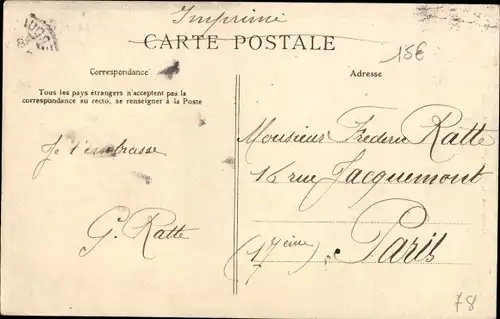 Imprimé
CARTE POSTALE
15€
Correspondance
Adresse
Tous les pays étrangers n'acceptent pas la
correspondance au recto, se renseigner à la Poste
Je t'embrasse
G. Ratte
Monsieur Frederic Ratte
16 rue Jacquemont
Paris
(17eme)
78